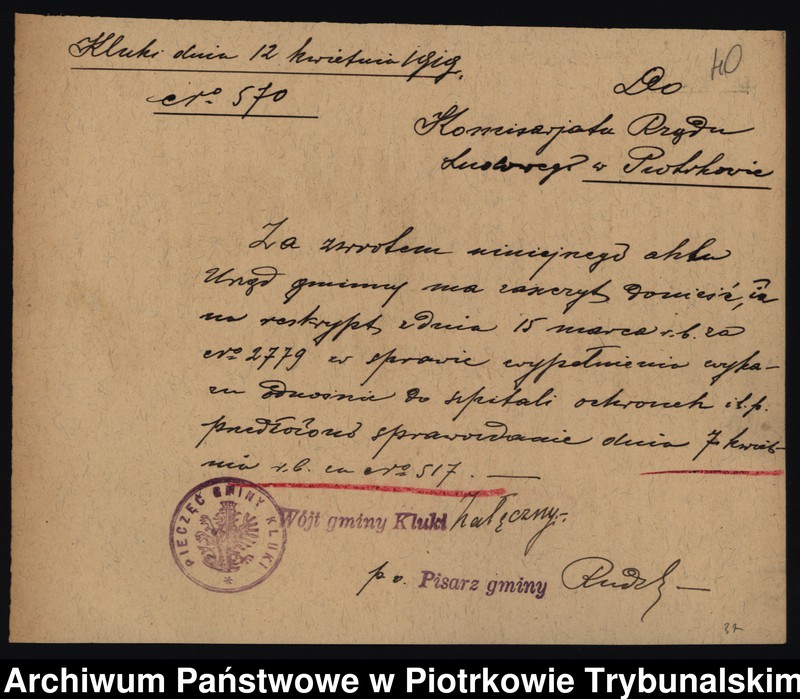 Kluki dnia 12 kwietnia 1919.
40
No 570
Do
Komisarjatu Rządu
Ludowego w Piotrkowie
Za zwrotem niniejnego aktu
Urząd gminny ma zaszczyt donieść, iż
na reskrypt z dnia 15 marca r.b. za
No 2779 w sprawie wypełnienia wyka-
zu odnośnie do szpitali ochronek i t.p.
przedłożono sprawozdanie dnia 7 kwiet-
nia r.b. za No 517. —
PIECZĘĆ GMINY KLUKI
Wójt gminy Kluki
p.o. Pisarz gminy
37
Archiwum Państwowe w Piotrkowie Trybunalskim